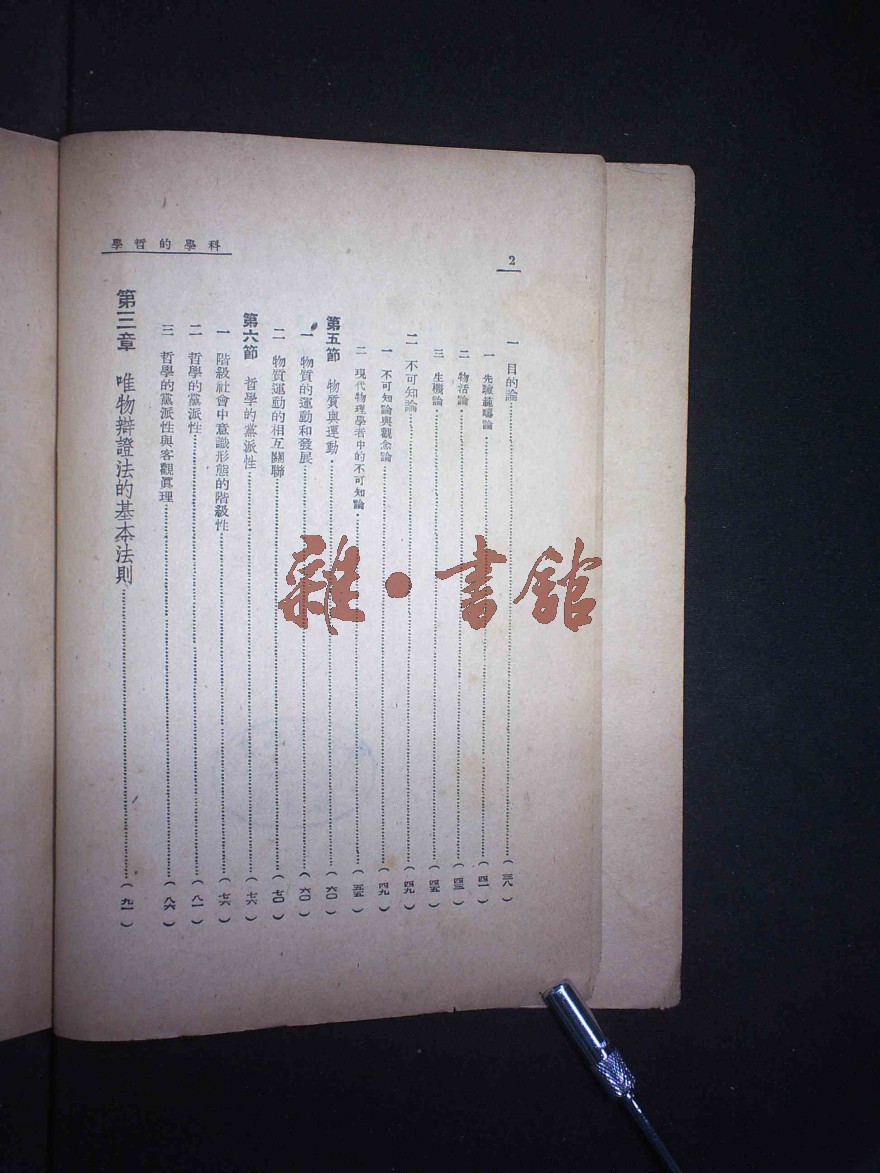 2
科學的哲學
一 目的論……(三八)
一 先 論……(四一)
二 物活論……(四三)
三 生機論……(四五)
二 不可知論……(四九)
一 不可知論與觀念論……(四九)
二 現代物理學者中的不可知論……(五五)
第五節 物質與運動……(六〇)
一 物質的運動和發展……(六〇)
二 物質運動的相互關聯……(七〇)
第六節 哲學的黨派性……(七六)
一 階級社會中意識形態的階級性……(七六)
二 哲學的黨派性……(八一)
三 哲學的黨派性與客觀眞理……(八六)
第三章 唯物辯證法的基本法則……(九一)
雜·書館